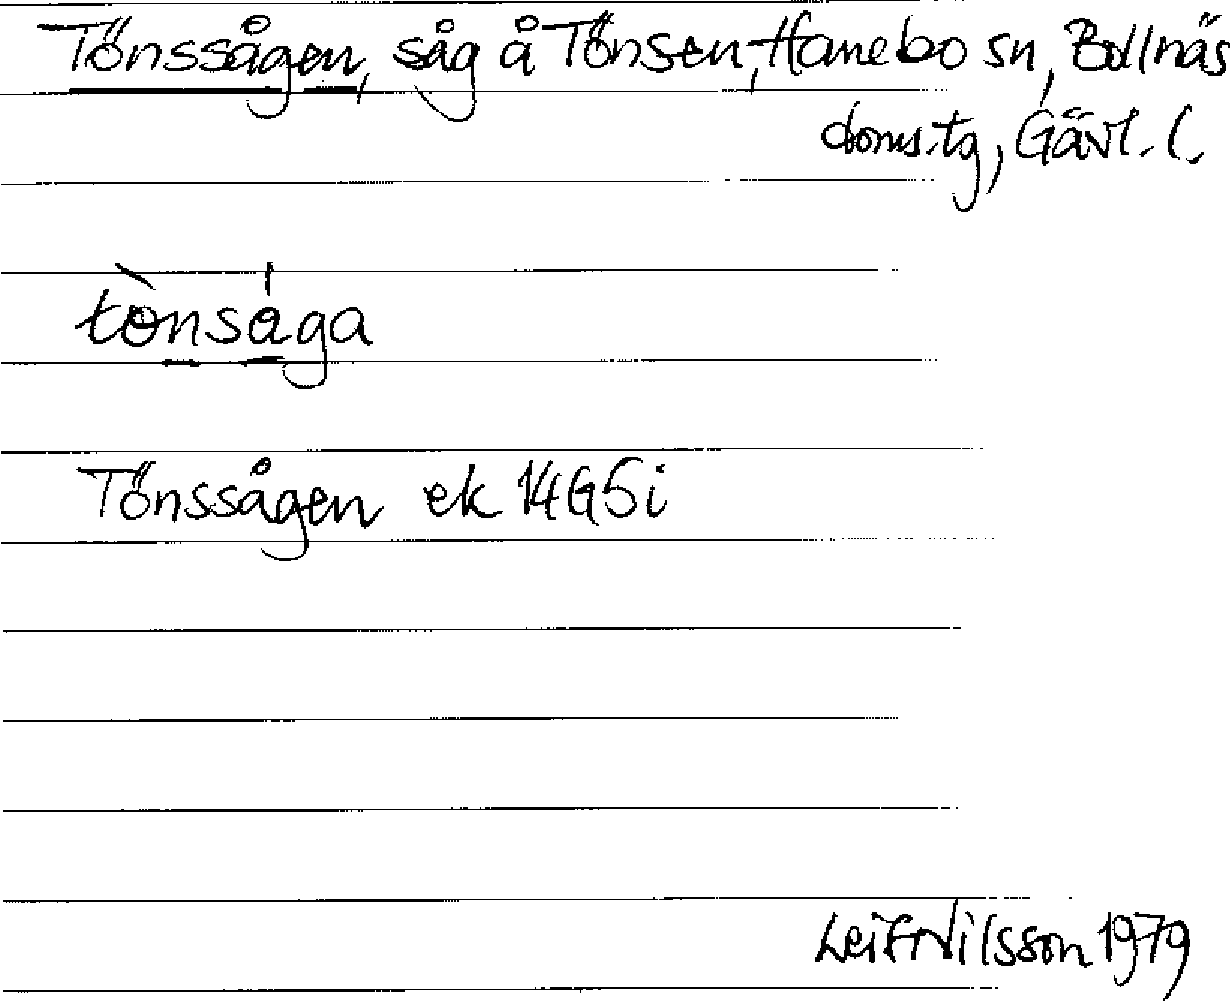 Tönssågen, såg å Tönsen, Hanebo sn, Bollnäs
doms.tg, Gävl. l.
tònsåga
Tönssågen ek 14G5i
Leif Nilsson 1979